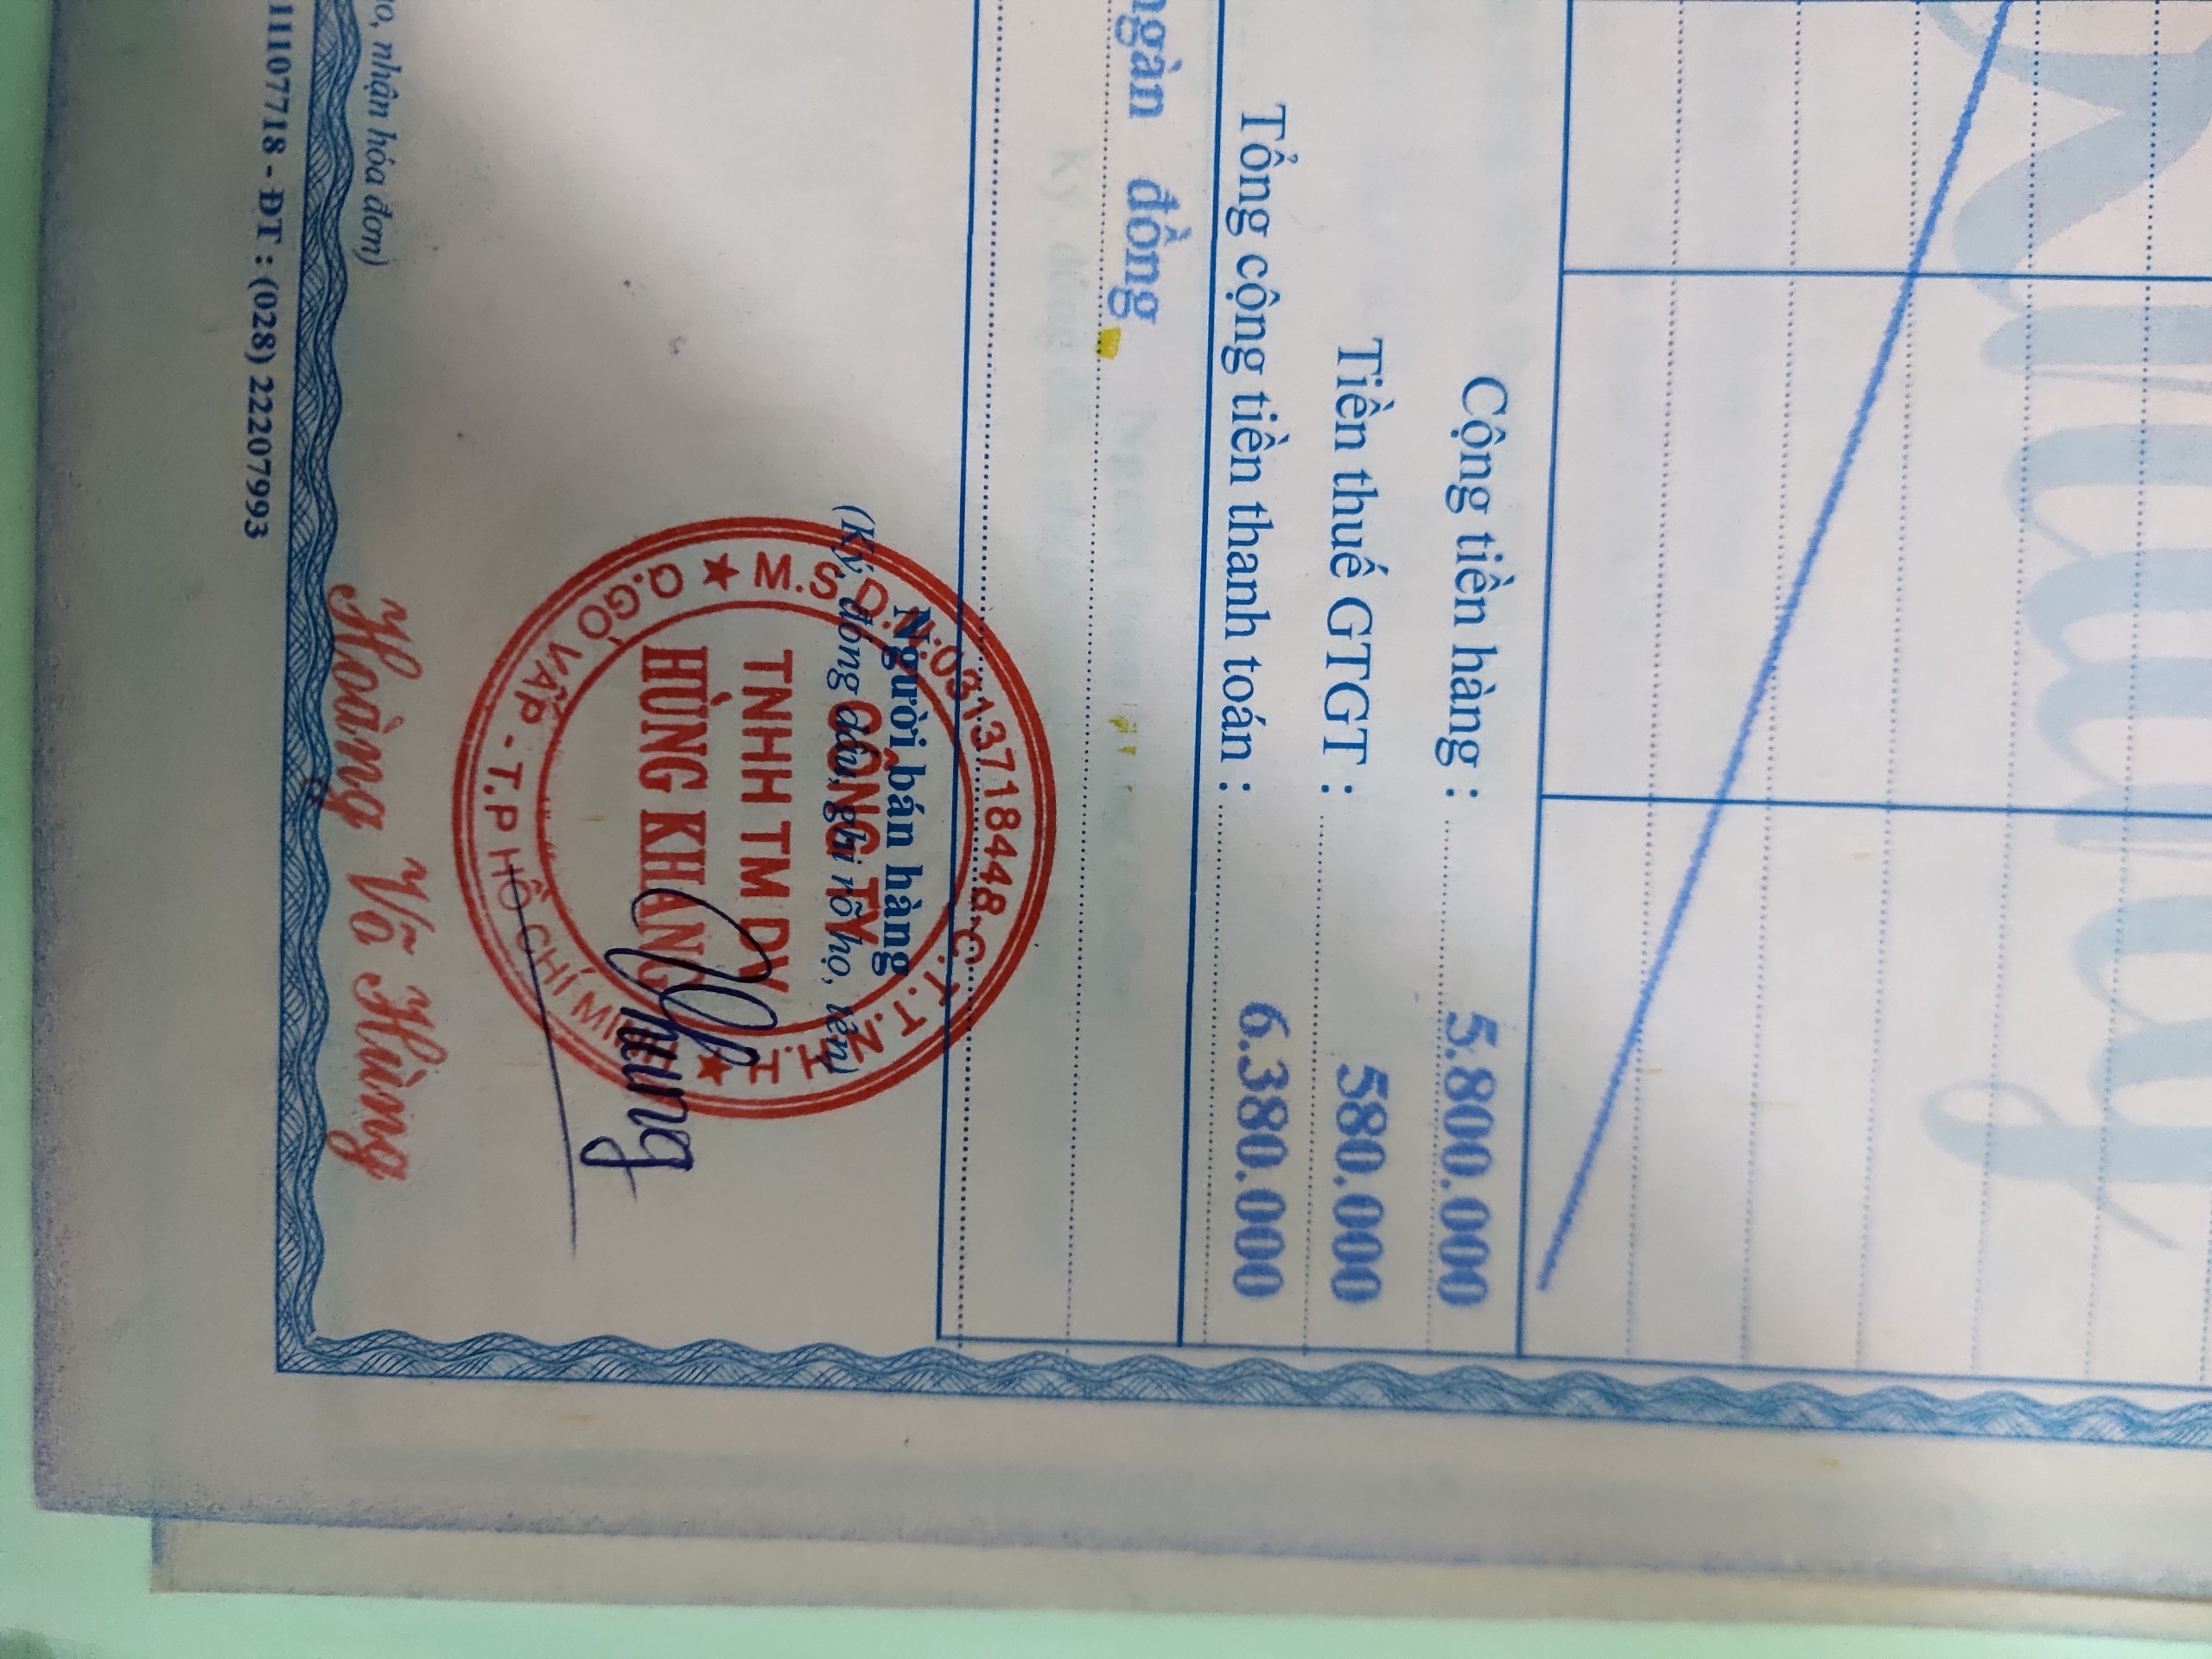 Cộng tiền hàng : 5.800.000
Tiền thuế GTGT : 580.000
Tổng cộng tiền thanh toán : 6.380.000
ngàn đồng
Người bán hàng
(Ký, đóng dấu, ghi rõ họ, tên)
M.S.D.N:0313718448-C.T.T.N.H.H
CÔNG TY
TNHH TM DV
HÙNG KHANG
Q.GÒ VẤP - T.P HỒ CHÍ MINH
Hoàng Võ Hùng
nhận hóa đơn)
11107718 - ĐT : (028) 22207993